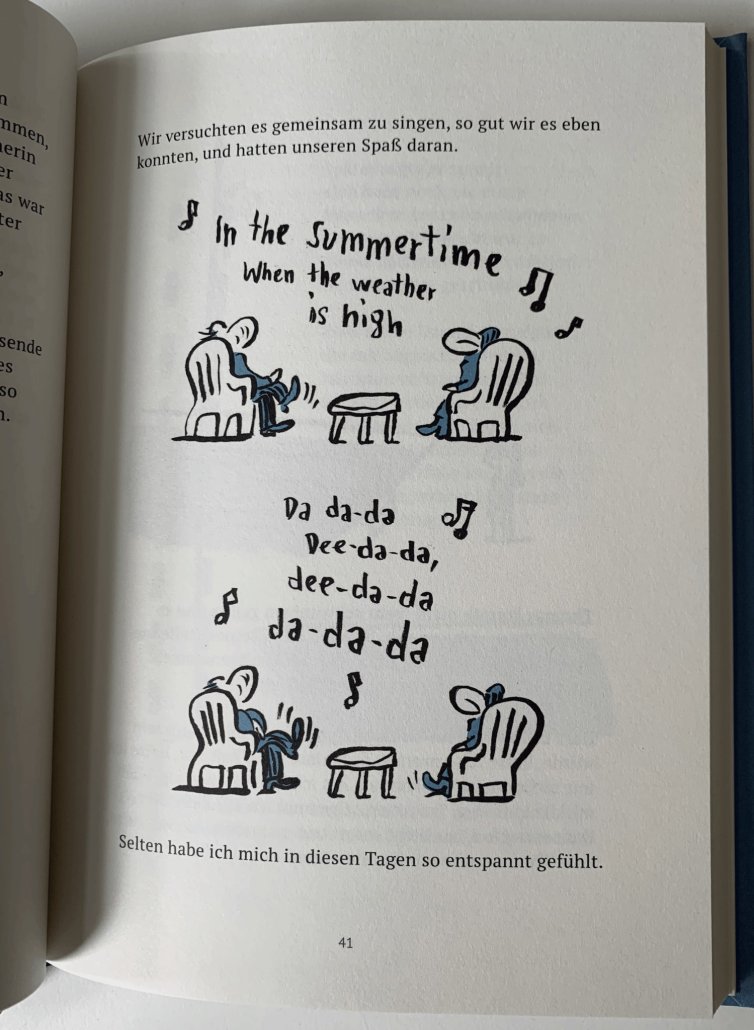 mmen,
erin
er
as war
ter
sende
es
so
Wir versuchten es gemeinsam zu singen, so gut wir es eben
konnten, und hatten unseren Spaß daran.
In the summertime
When the weather
is high
Da da-da
Dee-da-da,
dee-da-da
da-da-da
Selten habe ich mich in diesen Tagen so entspannt gefühlt.
41